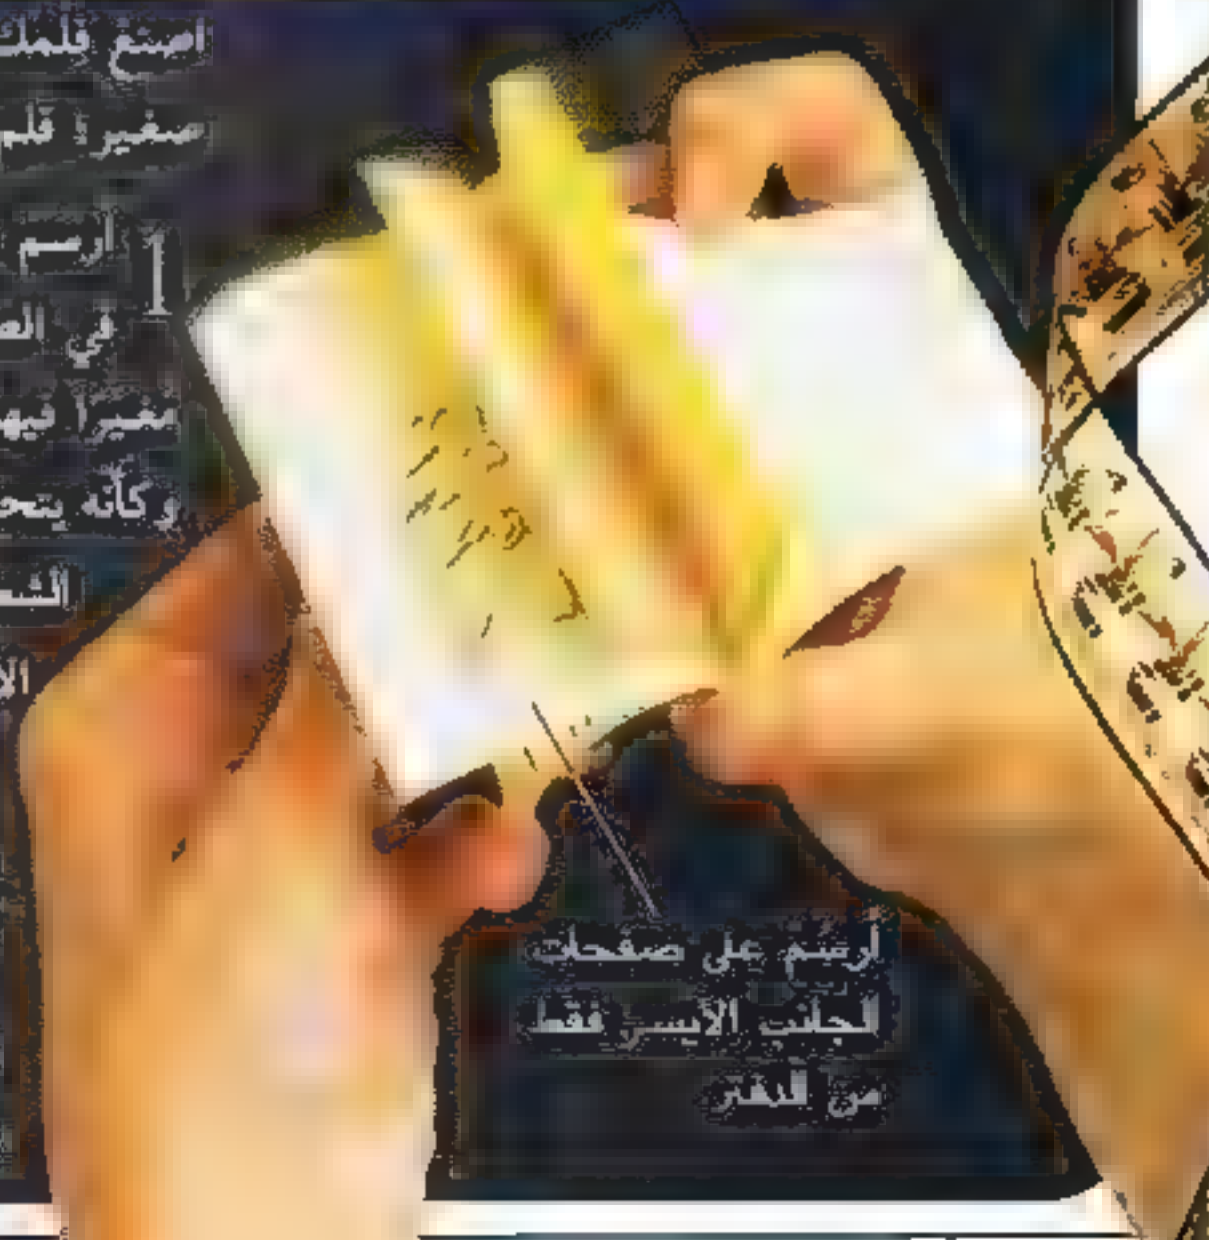 اصنع فلمك
صغيرا قلم
1 ارسم
في الص
مغيرا فيه
وكأنه يتحر
الشخ
الأ
أرسم على صفحات
الجانب الأيسر فقط
من الدفتر